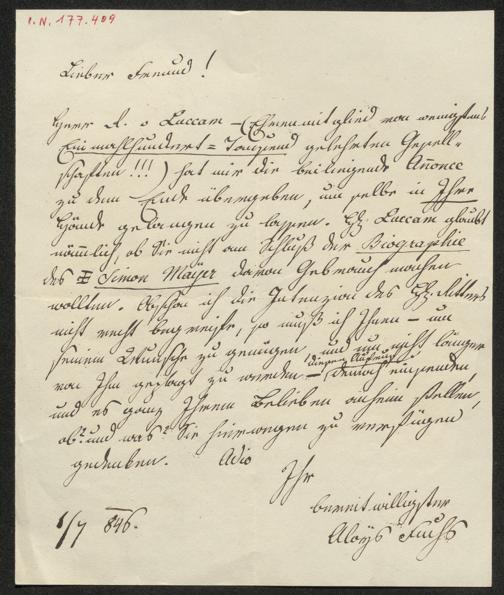 I.N. 177.409
Lieber Freund!
Herr R. v Luccam – (Ehrenmitglied von wenigstens
Einmahlhundert = Tausend gelehrten Gesell-
schaften!!!) hat mir die beiliegende Añonce
zu dem Ende übergeben, um selbe in Ihre
Hände gelangen zu lassen. H: Luccam glaubt
nämmlich, ob Sie nicht am Schluß der Biographie
des Simon Mayer davon Gebrauch machen
wollten. Obschon ich die Intenzion des H: Ritters
nicht recht begreife, so muß ich Ihnen – um
seinem Wunsche zu genügen und um nicht länger
von Ihm geplagt zu werden – diesen Aufsatz dennoch einsenden,
und es ganz Ihrem Belieben anheim stellen,
ob? und was? Sie hierwegen zu verfügen
gedenken. Adio
Ihr
bereitwilligster
Aloys Fuchs
1/7 846.